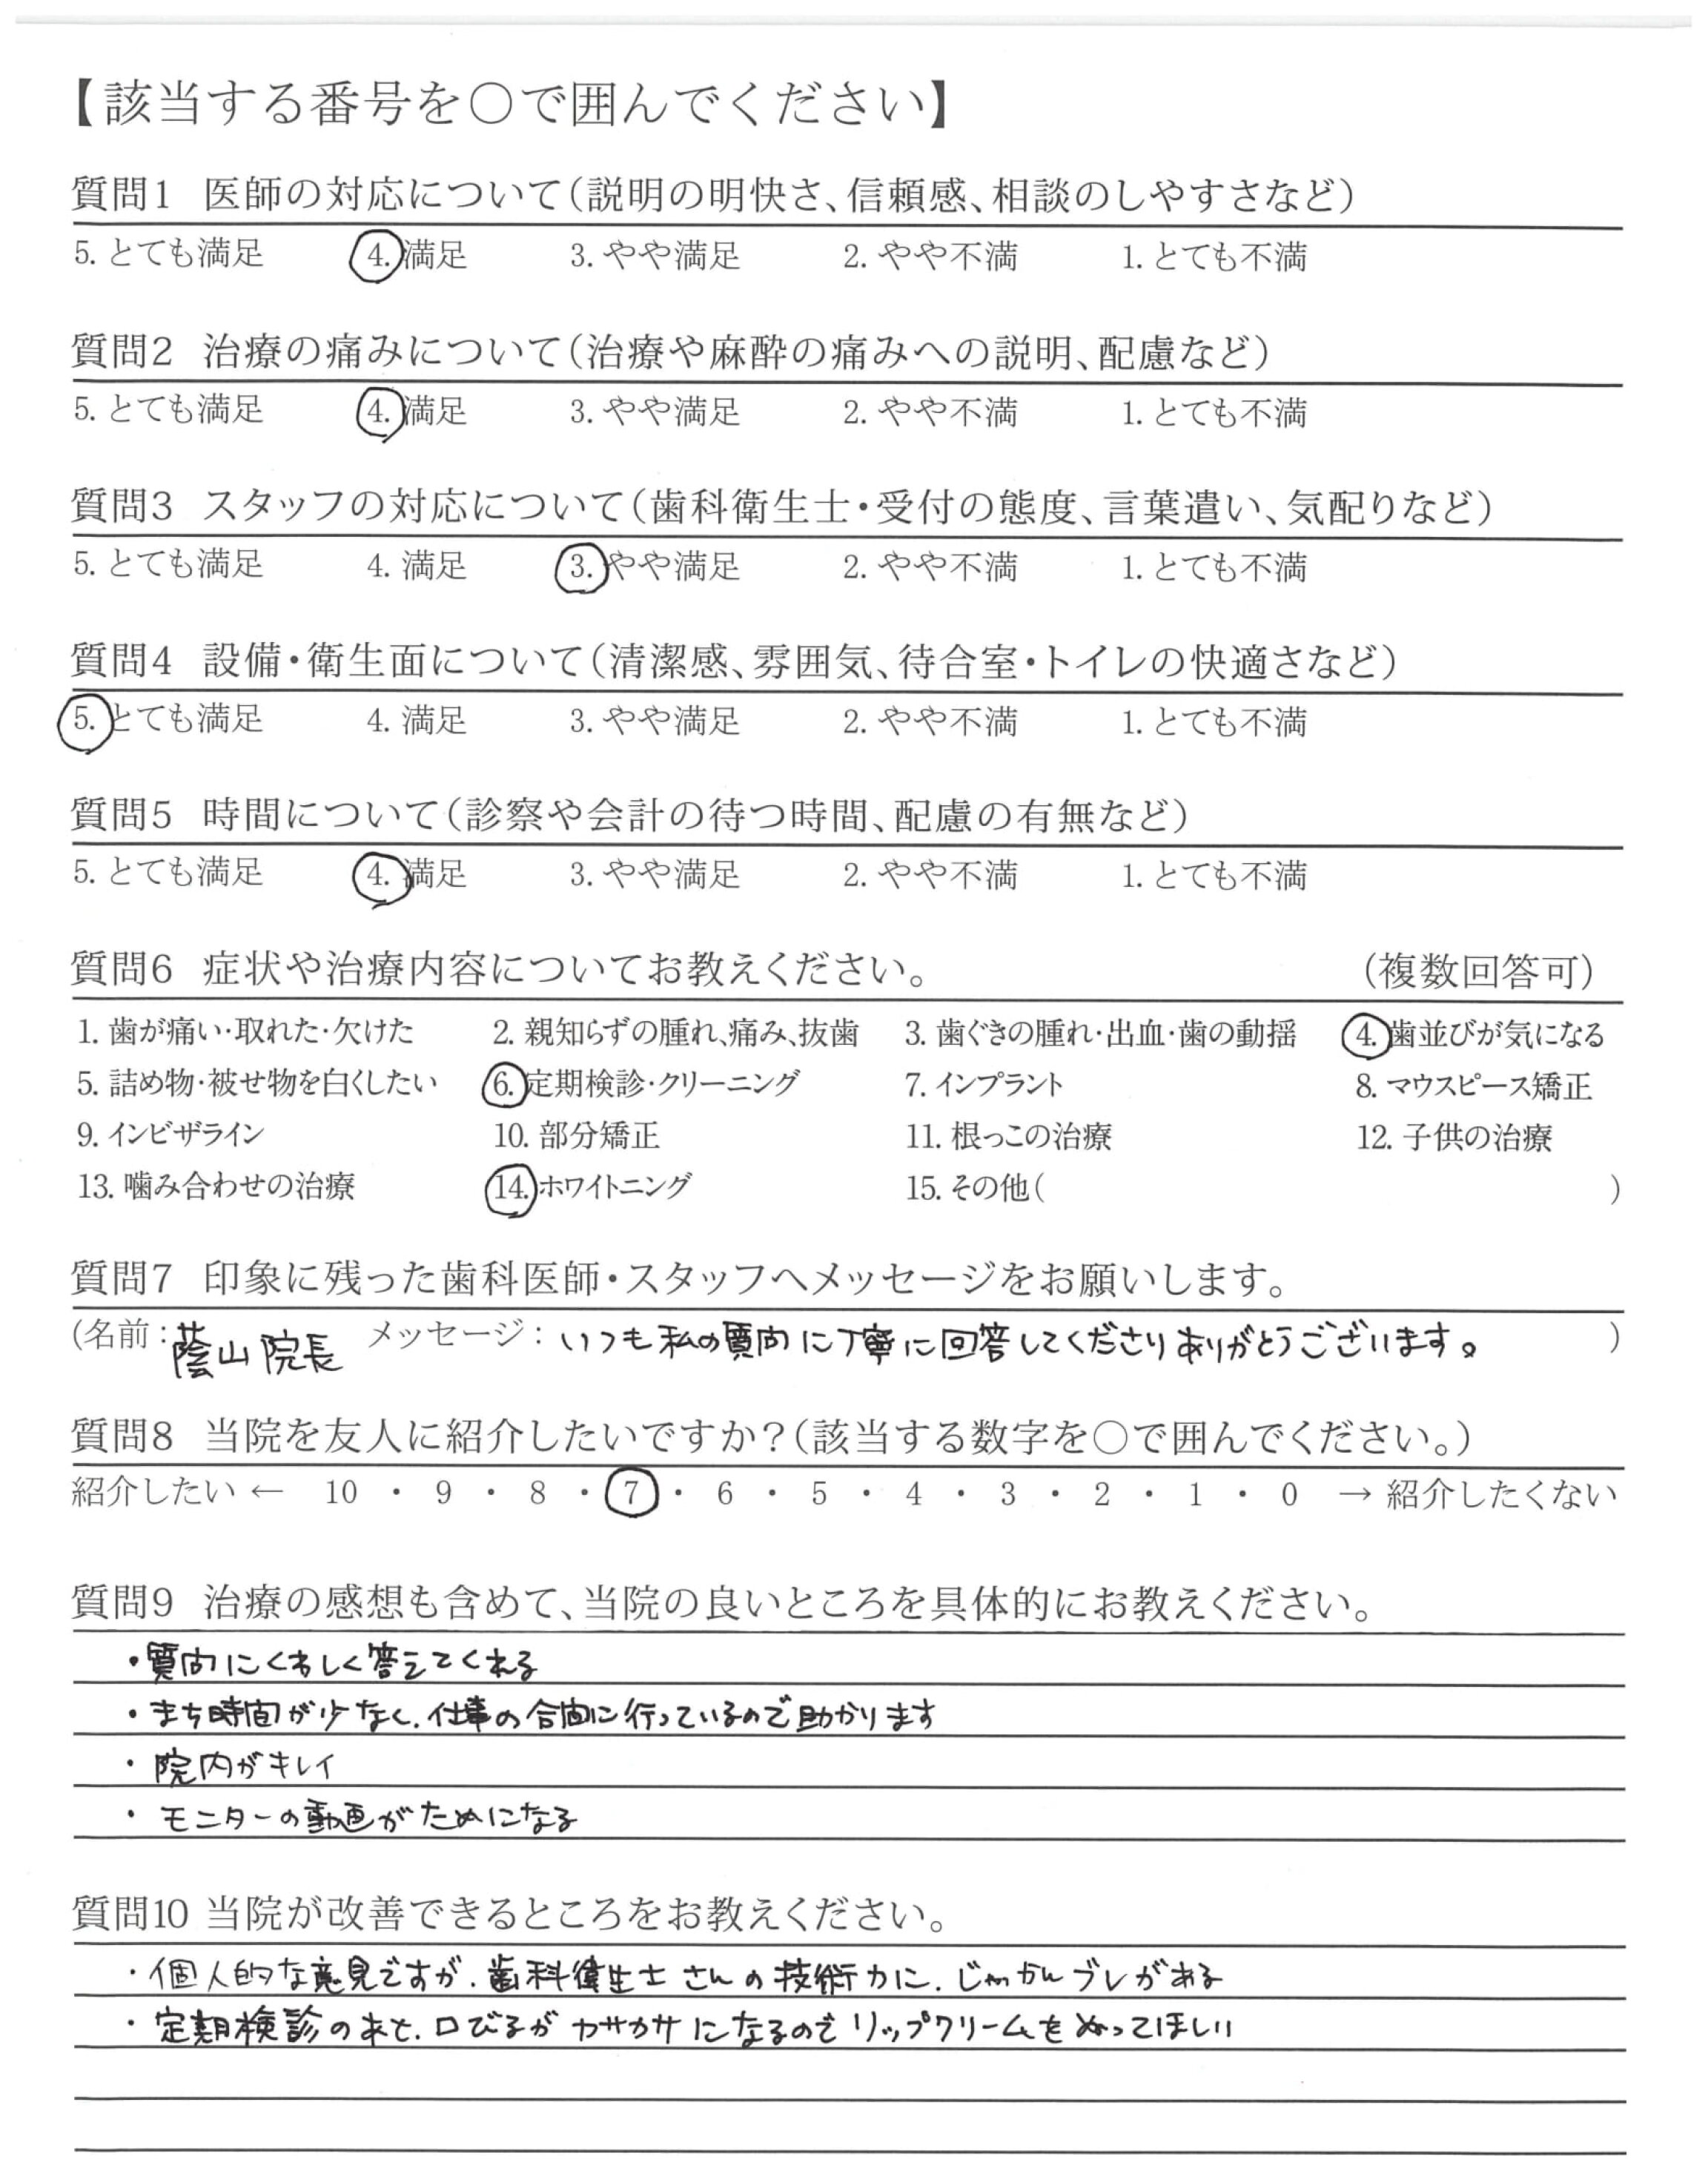 【該当する番号を〇で囲んでください】
質問1 医師の対応について(説明の明快さ、信頼感、相談のしやすさなど)
5. とても満足 4. 満足 3. やや満足 2. やや不満 1. とても不満
質問2 治療の痛みについて(治療や麻酔の痛みへの説明、配慮など)
5. とても満足 4. 満足 3. やや満足 2. やや不満 1. とても不満
質問3 スタッフの対応について(歯科衛生士・受付の態度、言葉遣い、気配りなど)
5. とても満足 4. 満足 3. やや満足 2. やや不満 1. とても不満
質問4 設備・衛生面について(清潔感、雰囲気、待合室・トイレの快適さなど)
5. とても満足 4. 満足 3. やや満足 2. やや不満 1. とても不満
質問5 時間について(診察や会計の待つ時間、配慮の有無など)
5. とても満足 4. 満足 3. やや満足 2. やや不満 1. とても不満
質問6 症状や治療内容についてお教えください。 (複数回答可)
1. 歯が痛い・取れた・欠けた 2. 親知らずの腫れ、痛み、抜歯 3. 歯ぐきの腫れ・出血・歯の動揺 4. 歯並びが気になる
5. 詰め物・被せ物を白くしたい 6. 定期検診・クリーニング 7. インプラント 8. マウスピース矯正
9. インビザライン 10. 部分矯正 11. 根っこの治療 12. 子供の治療
13. 噛み合わせの治療 14. ホワイトニング 15. その他( )
質問7 印象に残った歯科医師・スタッフへメッセージをお願いします。
(名前:蔭山院長 メッセージ:いつも私の質問に丁寧に回答してくださりありがとうございます。 )
質問8 当院を友人に紹介したいですか?(該当する数字を〇で囲んでください。)
紹介したい ← 10 ・ 9 ・ 8 ・ 7 ・ 6 ・ 5 ・ 4 ・ 3 ・ 2 ・ 1 ・ 0 → 紹介したくない
質問9 治療の感想も含めて、当院の良いところを具体的にお教えください。
・質問にくわしく答えてくれる
・まち時間が少なく、仕事の合間に行っているので助かります
・院内がキレイ
・モニターの動画がためになる
質問10 当院が改善できるところをお教えください。
・個人的な意見ですが、歯科衛生士さんの技術力に、じゃっかんブレがある
・定期検診のあと、口びるがカサカサになるのでリップクリームをぬってほしい